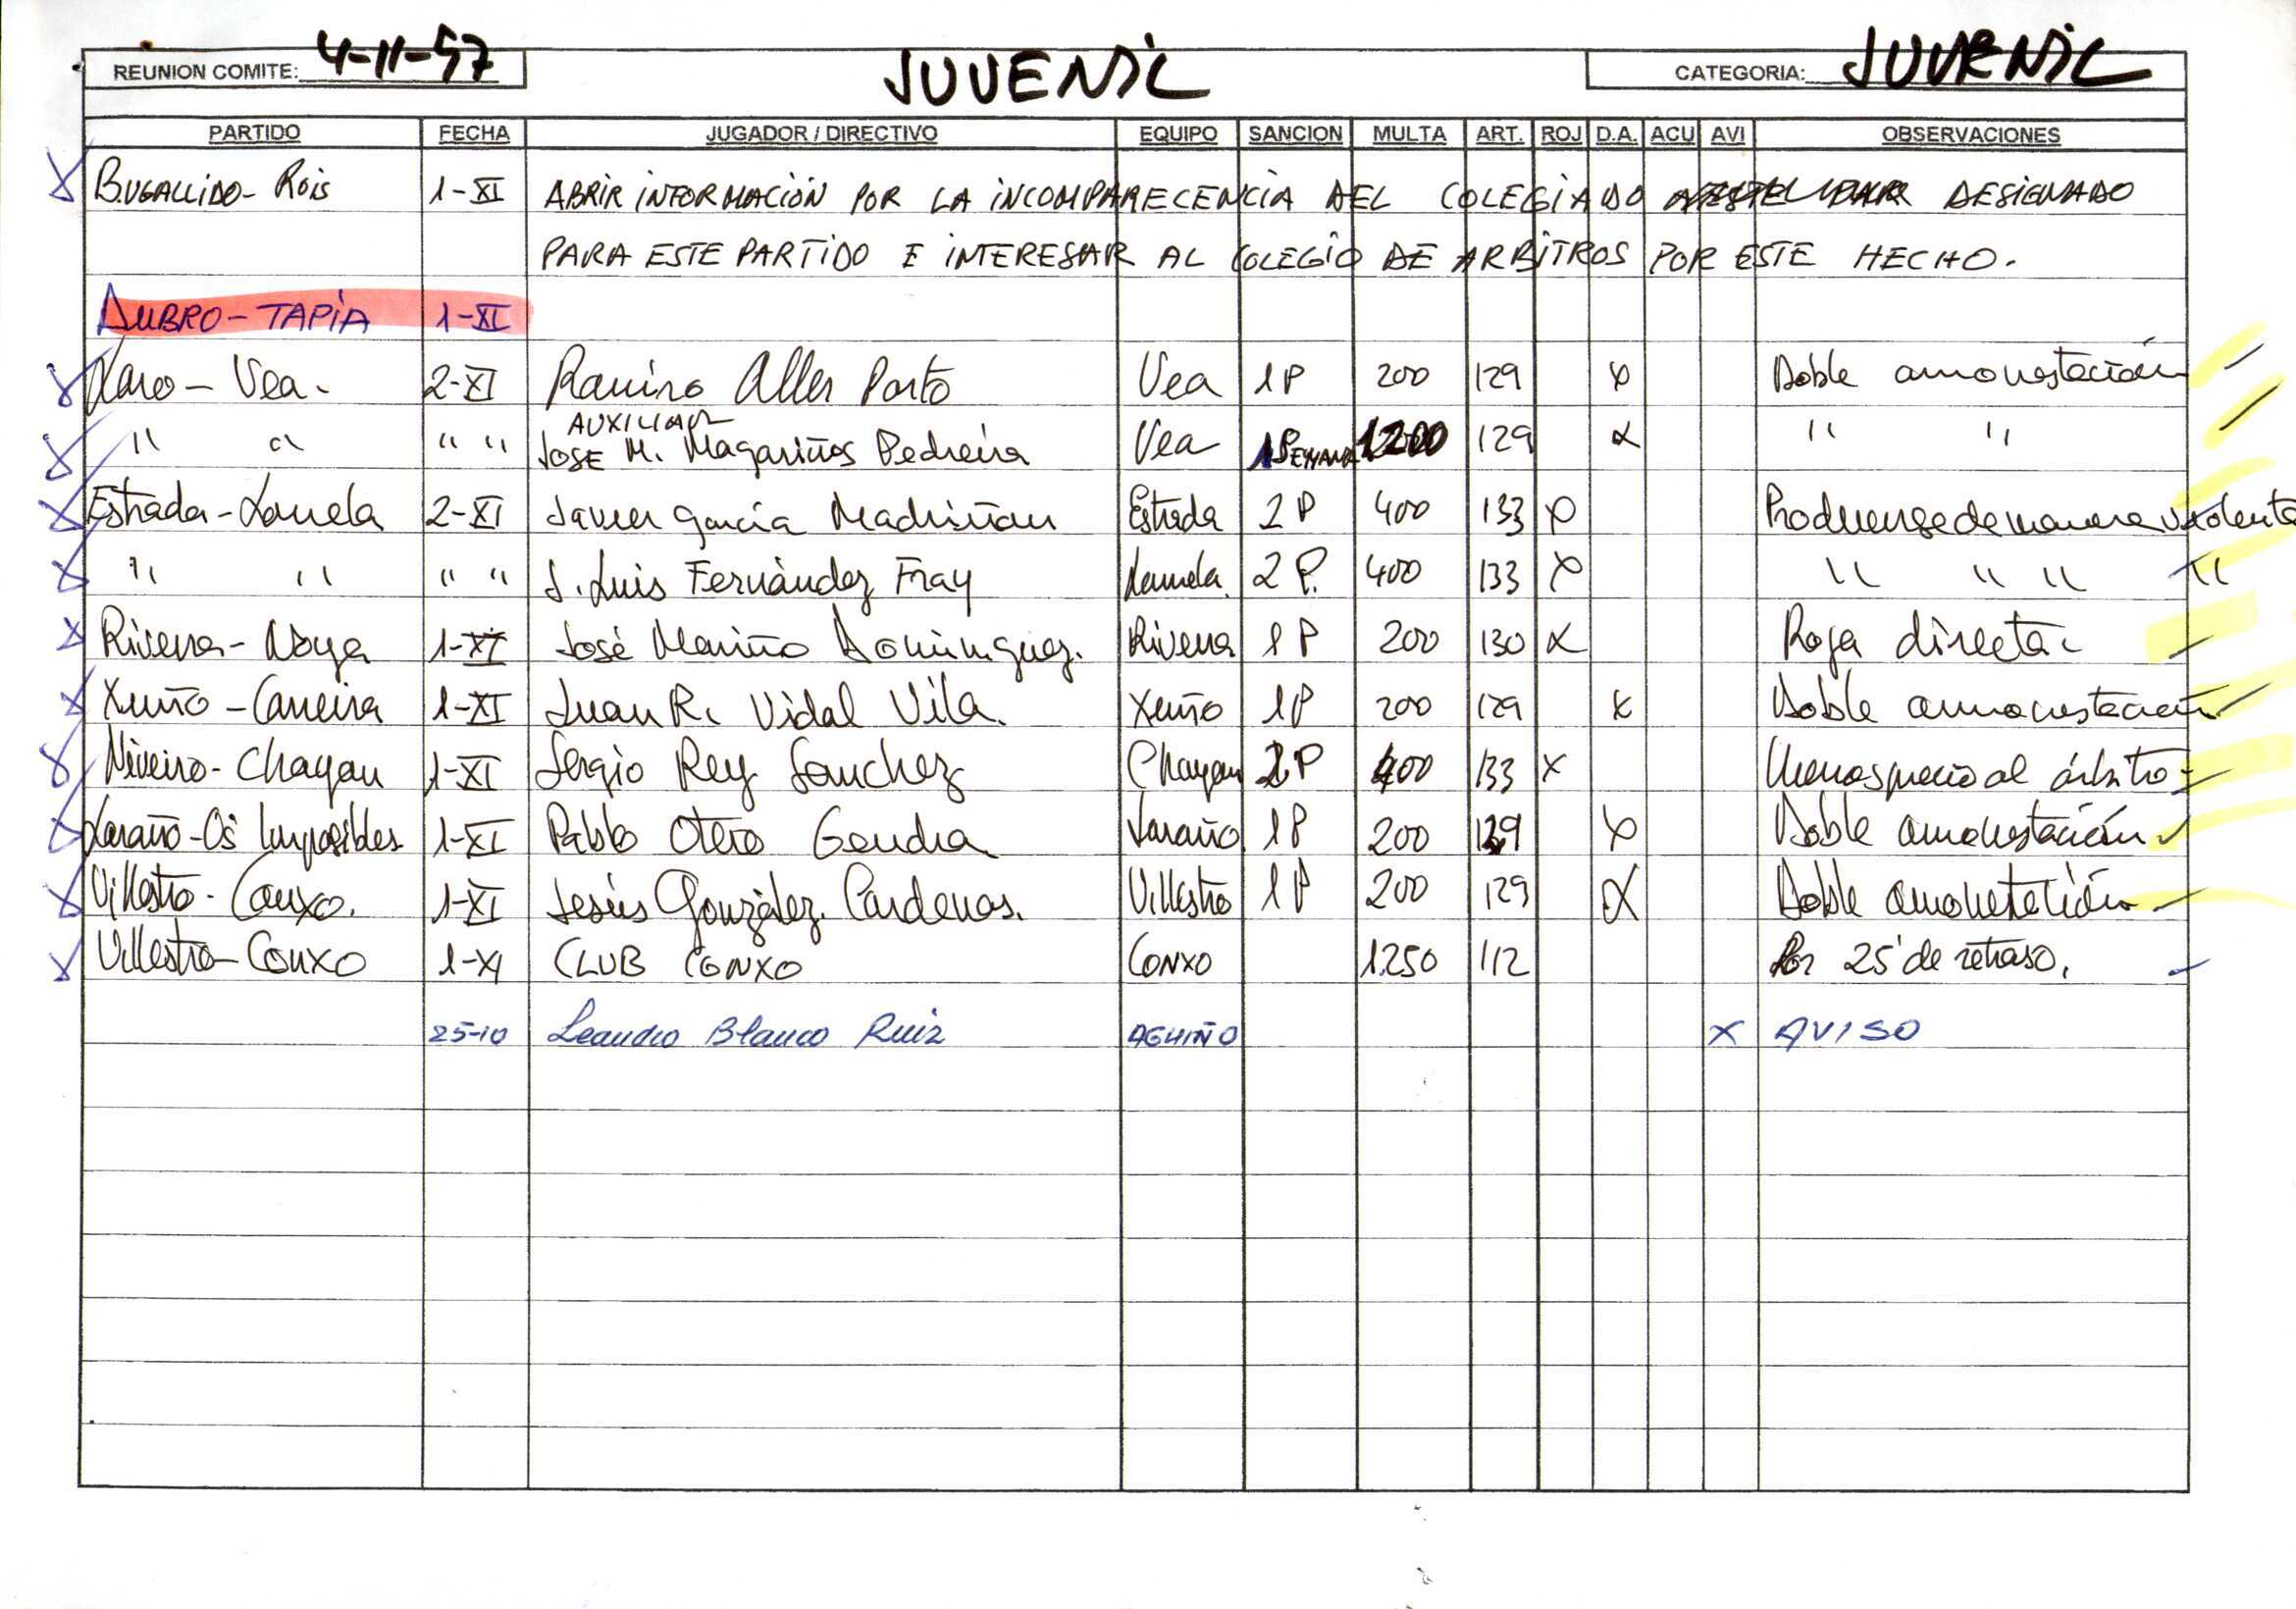 REUNION COMITE: 4-11-97 JUVENIL CATEGORIA: JUVENIL
PARTIDO FECHA JUGADOR / DIRECTIVO EQUIPO SANCION MULTA ART. ROJ D.A. ACU AVI OBSERVACIONES
BUGALLIDO - Rois 1-XI ABRIR INFORMACIÓN POR LA INCOMPARECENCIA DEL COLEGIADO DESIGNADO
PARA ESTE PARTIDO E INTERESAR AL COLEGIO DE ARBITROS POR ESTE HECHO.
DUBRO - TAPIA 1-XI
Laro - Vea. 2-XI Ramiro Aller Porto Vea 1P 200 129 x Doble amonestación
AUXILIAR
" " " " JOSE M. Magariños Pedreira Vea 1 SEMANA 1200 129 x " "
Estrada - Lamela 2-XI Javier García Madriñan Estrada 2 P 400 133 x Producirse de manera violenta
" " " " J. Luis Fernández Fray Lamela 2 P. 400 133 x " " " "
Riveira - Noya 1-XI José Mariño Dominguez. Riveira 1 P 200 130 x Roja directa
Xuño - Carreira 1-XI Juan R. Vidal Vila. Xuño 1P 200 129 x Doble amonestación
Niveiro - Chayan 1-XI Sergio Rey Sanchez Chayan 2P 400 133 x Menosprecio al árbitro
Laraño - Os Imposibles 1-XI Pablo Otero Gendra Laraño 1P 200 129 x Doble amonestación
Villestro - Conxo. 1-XI Jesús González Cardenas. Villestro 1P 200 129 x Doble amonetación
Villestro - Conxo 1-XI CLUB CONXO CONXO 1.250 112 Por 25' de retraso.
25-10 Leandro Blanco Ruiz AGUIÑO x AVISO